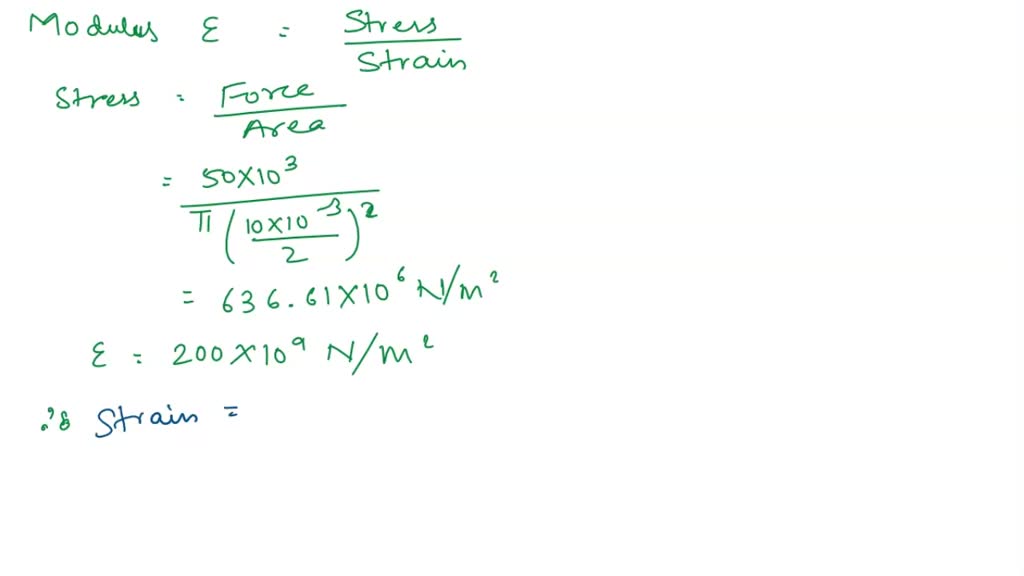 Modulus ε = Stress / Strain
Stress = Force / Area
= 50×10³ / π (10×10⁻³ / 2)²
= 636.61×10⁶ N/m²
ε = 200×10⁹ N/m²
∴ Strain =